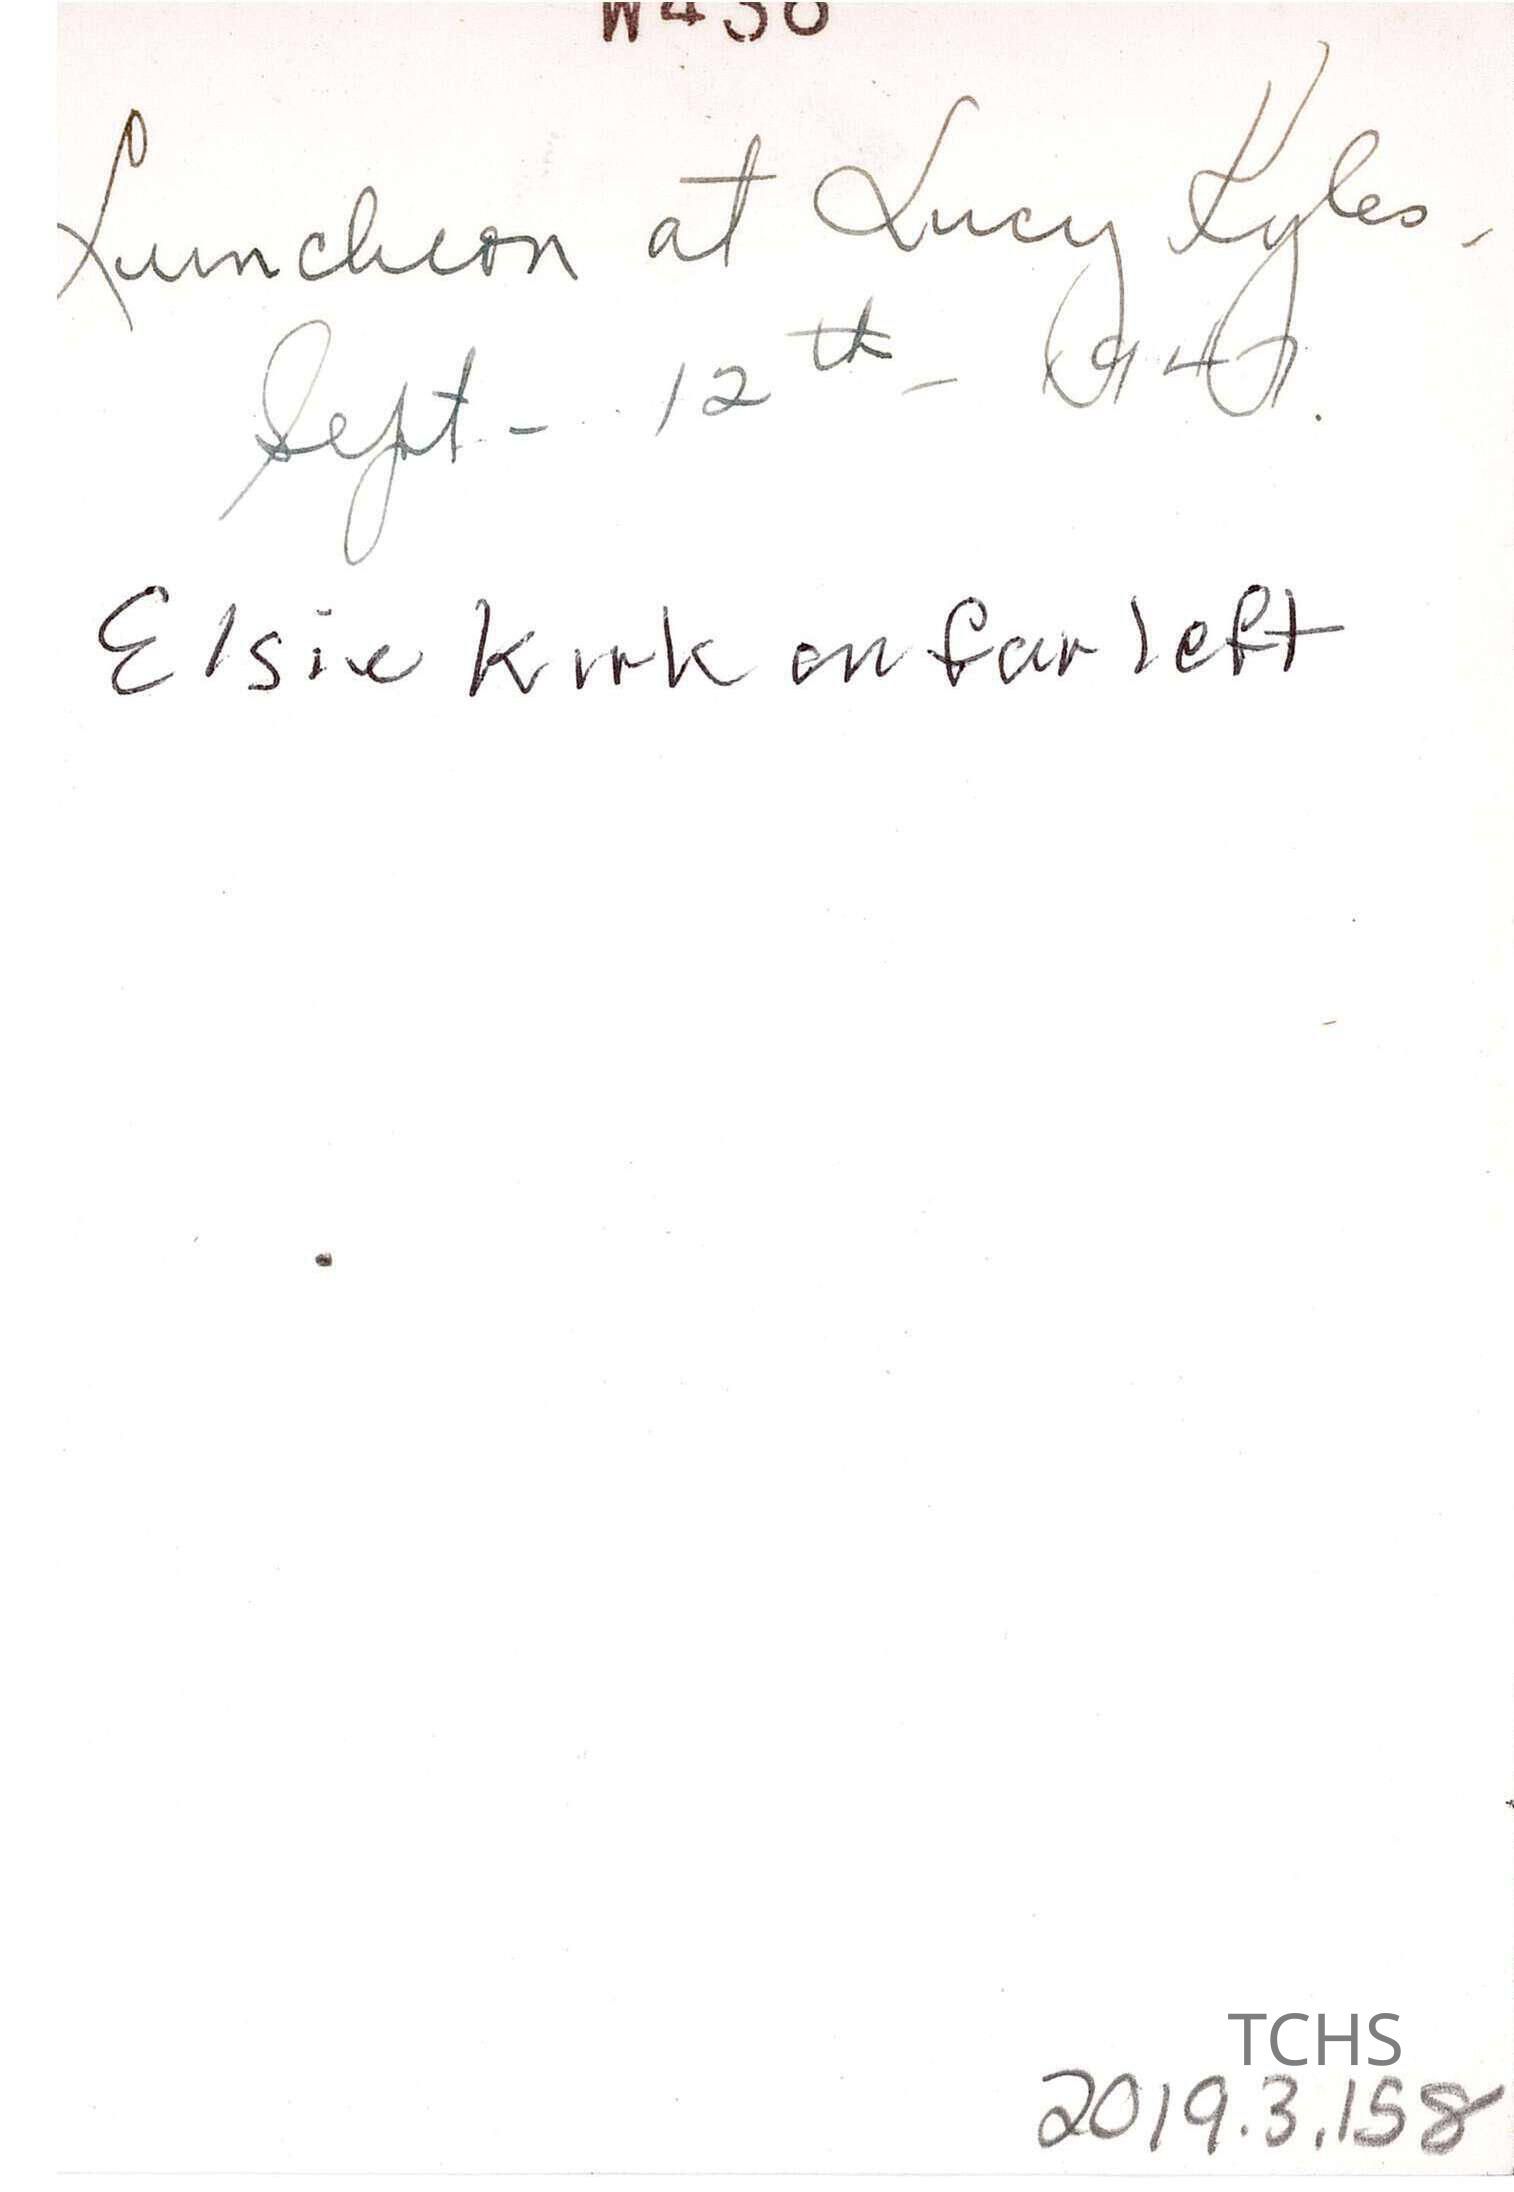 Luncheon at Lucy Kyles -
Sept - 12th - 1947.
Elsie Kirk on far left
TCHS
2019.3.158